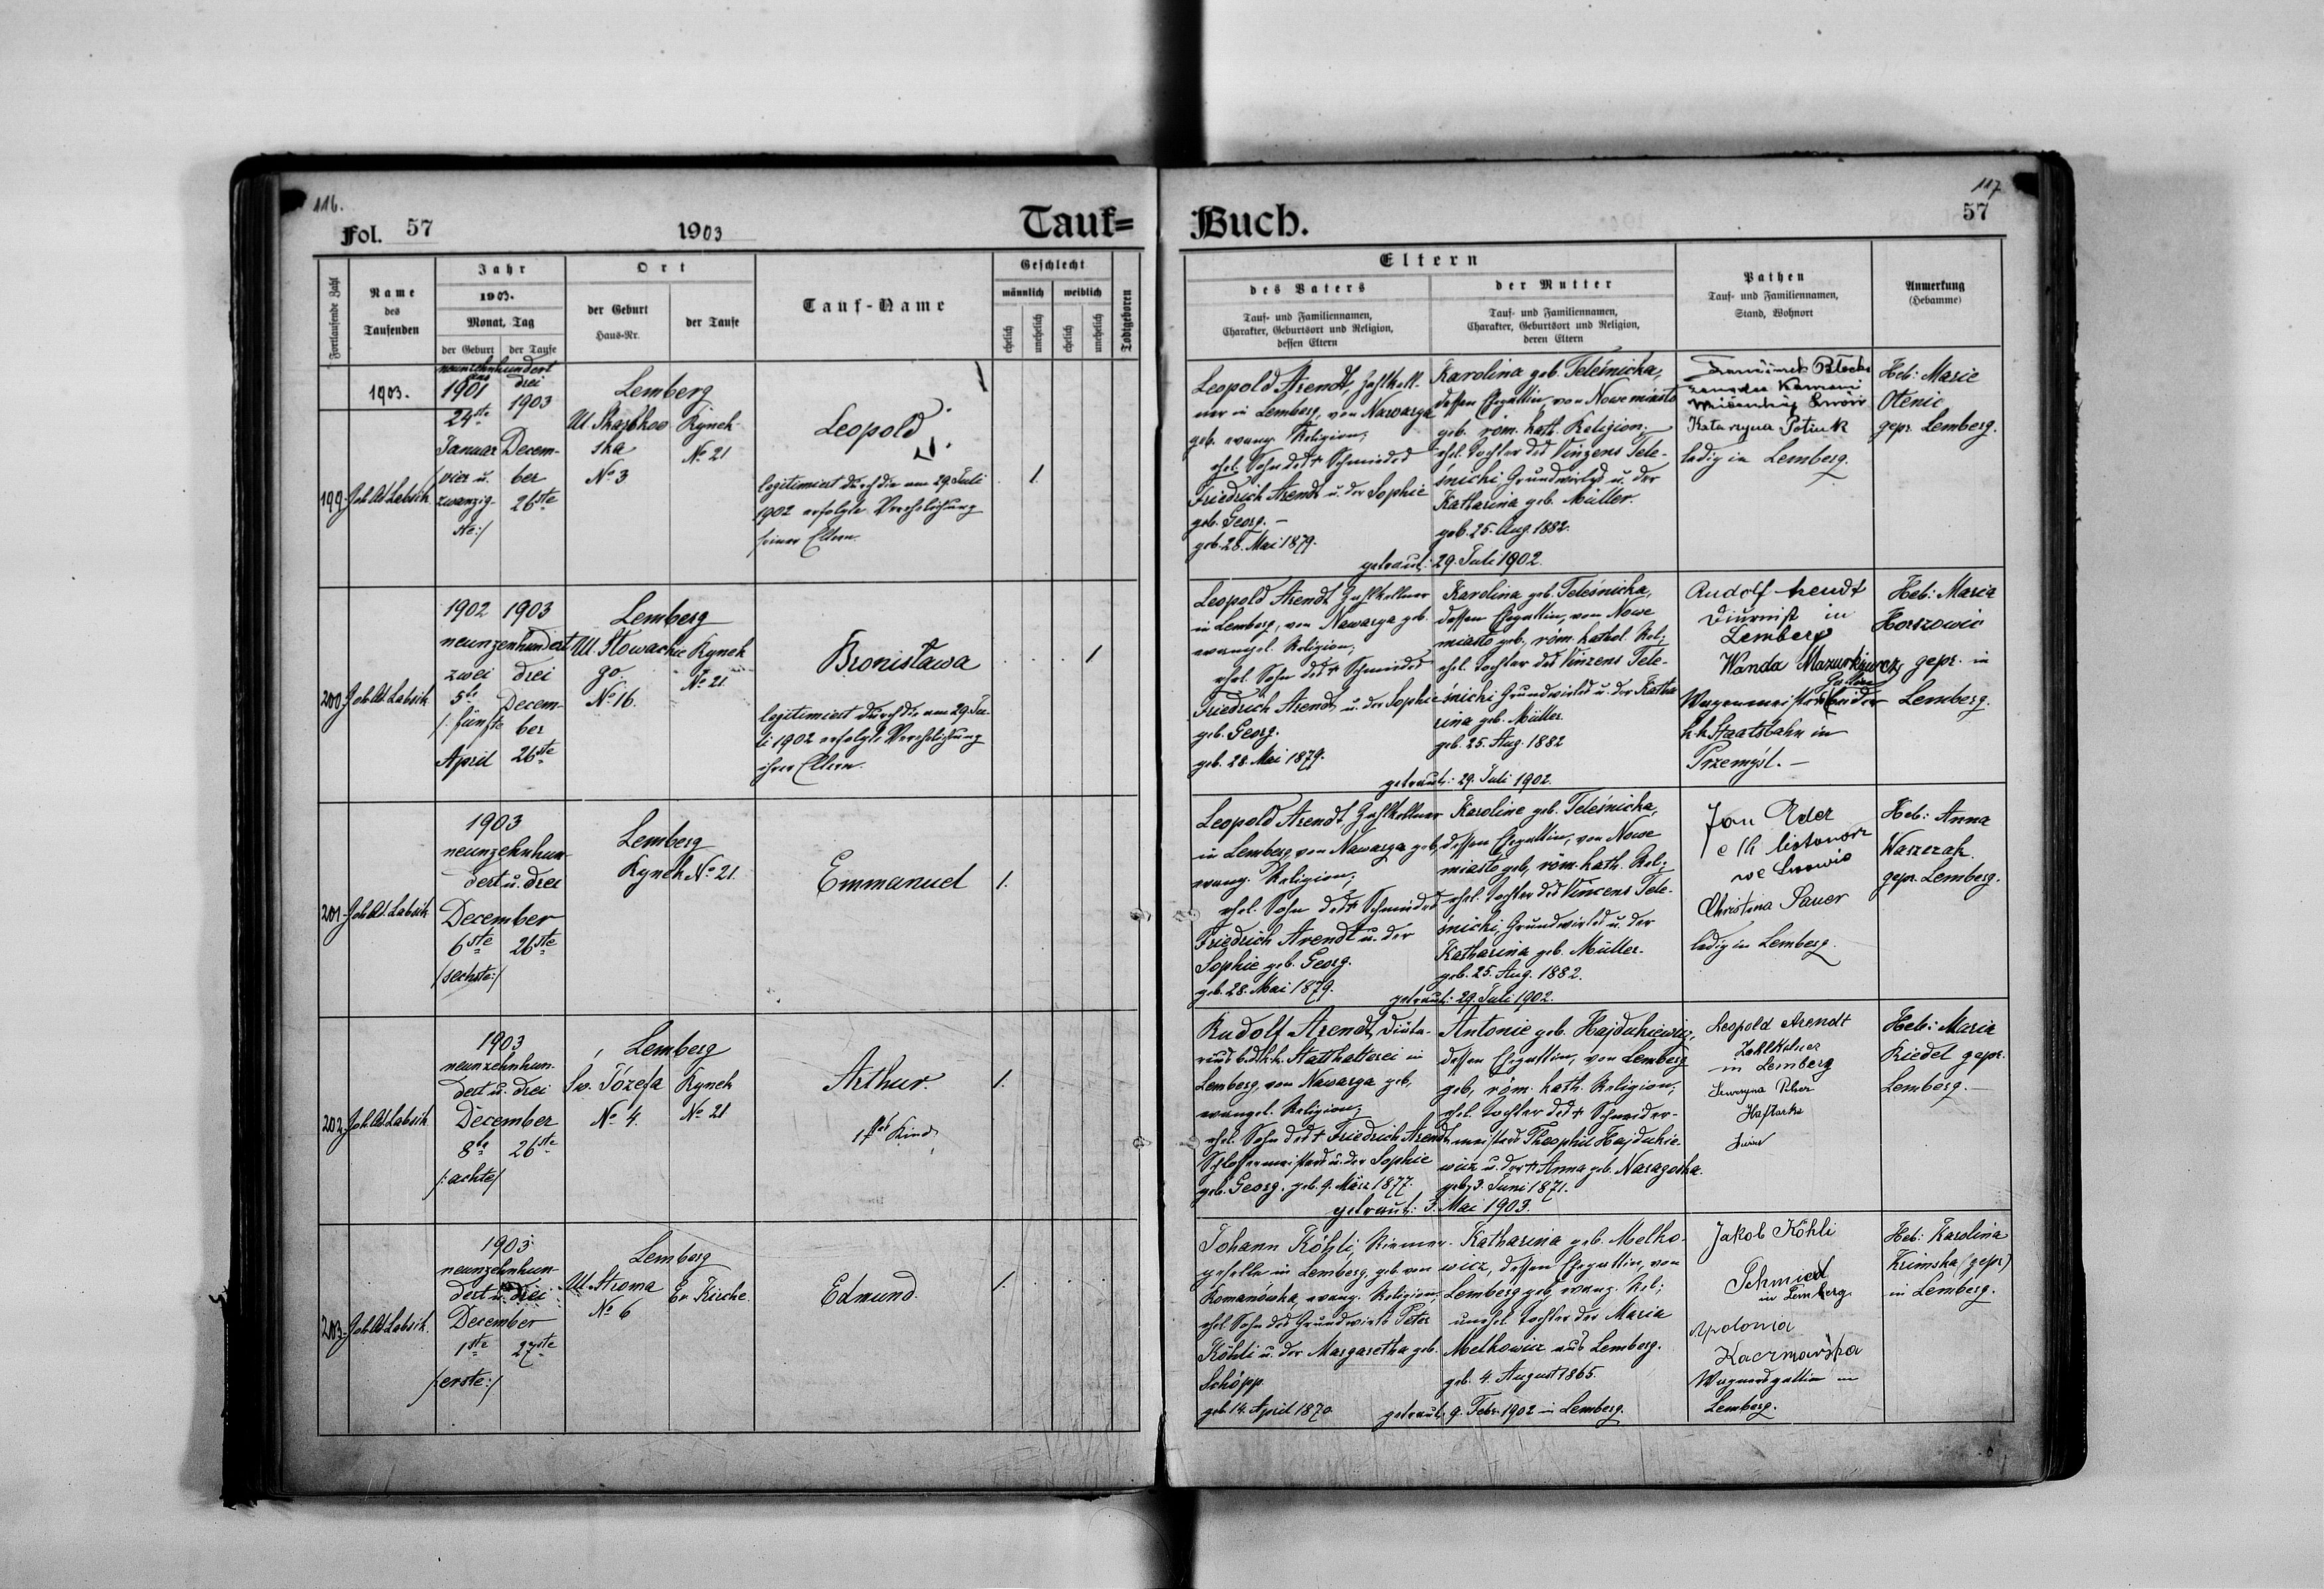 116.
Fol. 57
1903
Tauf=
Fortlaufende Zahl
Name
des
Taufenden
Jahr
1903.
Monat, Tag
der Geburt
der Taufe
Ort
der Geburt
Haus-Nr.
der Taufe
Tauf-Name
Geschlecht
männlich
weiblich
ehelich
unehelich
ehelich
unehelich
Todtgeboren
1903.
199.
Joh. Ad. Labsik
neunzehnhundert
eins drei
1901 1903
24ste
Januar Decem-
/vier u. ber
zwanzig- 26ste
ste:/
Lemberg
Ul. Skarbkow Rynek
ska No 21
No 3
Leopold
legitimiert durch die am 29. Juli
1902 erfolgte Verehelichung
seiner Eltern.
1.
200.
Joh. Ad. Labsik
1902 1903
neunzenhundert
zwei drei
5te Decem-
/: fünfte ber
April 26ste
Lemberg
Ul. Słowackie Rynek
go. No 21.
No 16.
Bronisława
legitimiert durch die am 29. Ju-
li 1902 erfolgte Verehelichung
ihrer Eltern.
1
201.
Joh. Ad. Labsik
1903
neunzehnhun-
dert u. drei
December
6ste 26ste
/sechste:/
Lemberg
Rynek No 21.
Emmanuel
1.
202.
Joh. Ad. Labsik
1903
neunzehnhun-
dert u. drei
December
8te 26ste
/: achte/
Lemberg
Św. Józefa Rynek
No 4. No 21
Arthur.
1stes Kind
1.
203.
Joh. Ad. Labsik.
1903
neunzehnhun-
dert u. drei
December
1ste 27ste
/erste:/
Lemberg
Ul. Stroma Ev. Kirche.
No 6
Edmund.
1.
117
57
Buch.
Eltern
des Vaters
Tauf- und Familiennamen,
Charakter, Geburtsort und Religion,
dessen Eltern
der Mutter
Tauf- und Familiennamen,
Charakter, Geburtsort und Religion,
deren Eltern
Pathen
Tauf- und Familiennamen,
Stand, Wohnort
Anmerkung
(Hebamme)
Leopold Arendt, Zahlkell-
ner in Lemberg, von Nawarya
geb. evang. Religion;
ehel. Sohn des † Schmiedes
Friedrich Arendt u. der Sophie
geb. Georg. –
geb. 28. Mai 1879.
Karolina geb. Teleśnicka,
dessen Ehegattin, von Nowe miasto
geb. röm. kath. Religion;
ehel. Tochter des Vinzens Tele-
śnicki Grundwirtes u. der
Katharina geb. Müller.
geb. 25. Aug. 1882.
getraut: 29. Juli 1902.
Kataryna Potiuk
ledig in Lemberg.
Heb: Marie
Olenic
gepr. Lemberg.
Leopold Arendt Zahlkellner
in Lemberg, von Nawarya geb.
evangel. Religion;
ehel. Sohn des † Schmiedes
Friedrich Arendt u. der Sophie
geb. Georg.
geb. 28. Mai 1879.
Karolina geb. Teleśnicka,
dessen Ehegattin, von Nowe
miasto geb, röm. kathol. Rel;
ehel. Tochter des Vinzens Tele-
śnicki Grundwirtes u. der Katha
rina geb. Müller.
geb. 25. Aug. 1882
getraut: 29. Juli 1902.
Rudolf Arendt
Diurnist in
Lemberg
Wanda Mazurkiewicz
Gattin
Wagenmeisters bei der
k.k. Staatsbahn in
Przemyśl. –
Heb: Maria
Horszowic
gepr. in
Lemberg.
Leopold Arendt, Zahlkellner
in Lemberg, von Nawarya geb,
evang. Religion;
ehel. Sohn des † Schmiedes
Friedrich Arendt u. der
Sophie geb. Georg.
geb. 28. Mai 1879.
Karoline geb. Teleśnicka,
dessen Ehegattin, von Nowe
miasto geb, röm. kath. Rel;
ehel. Tochter des Vincens Tele-
śnicki, Grundwirtes u. der
Katharina geb. Müller.
geb. 25. Aug. 1882.
getraut: 29. Juli 1902.
Jan Eder
c. k. listonosz
we Lwowie
Christina Sauer
ledig in Lemberg.
Heb: Anna
Waszczak.
gepr. Lemberg.
Rudolf Arendt, Diäta-
rius b. d. k.k. Statthalterei in
Lemberg, von Nawarya geb,
evangel. Religion;
ehel. Sohn des † Friedrich Arendt
Schlossermeisters u. der Sophie
geb. Georg. geb. 9. März 1877.
Antonie geb. Hajdukiewicz,
dessen Ehegattin, von Lemberg
geb, röm. kath. Religion;
ehel. Tochter des † Schneider-
meisters Theophil Hajdukie-
wicz u. der † Anna geb. Naragorska.
geb. 3. Juni 1871.
getraut: 3. Mai 1903.
Leopold Arendt
Zahlkelner
in Lemberg
Haftarka
Heb: Maria
Riedel gepr.
Lemberg. –
Johann Köhli, Riemer-
geselle in Lemberg, geb. von
Romanówka, evang. Religion;
ehel. Sohn des Grundwirts Peter
Köhli u. der Margaretha geb.
Schöpp
geb. 14. April 1870.
Katharina geb. Melko-
wicz, dessen Ehegattin, von
Lemberg geb, evang. Rel;
unehel. Tochter der Maria
Melkowicz aus Lemberg.
geb. 4. August 1865.
getraut: 9. Febr. 1902 in Lemberg.
Jakob Köhli
Schmied
in Lemberg
Apolonia
Kaczmarska
Wagnersgattin in
Lemberg.
Heb: Karolina
Krimska (gepr)
in Lemberg.